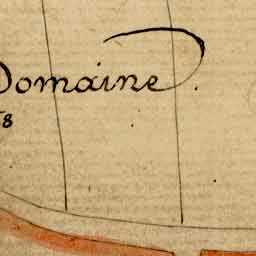 Domaine.
8